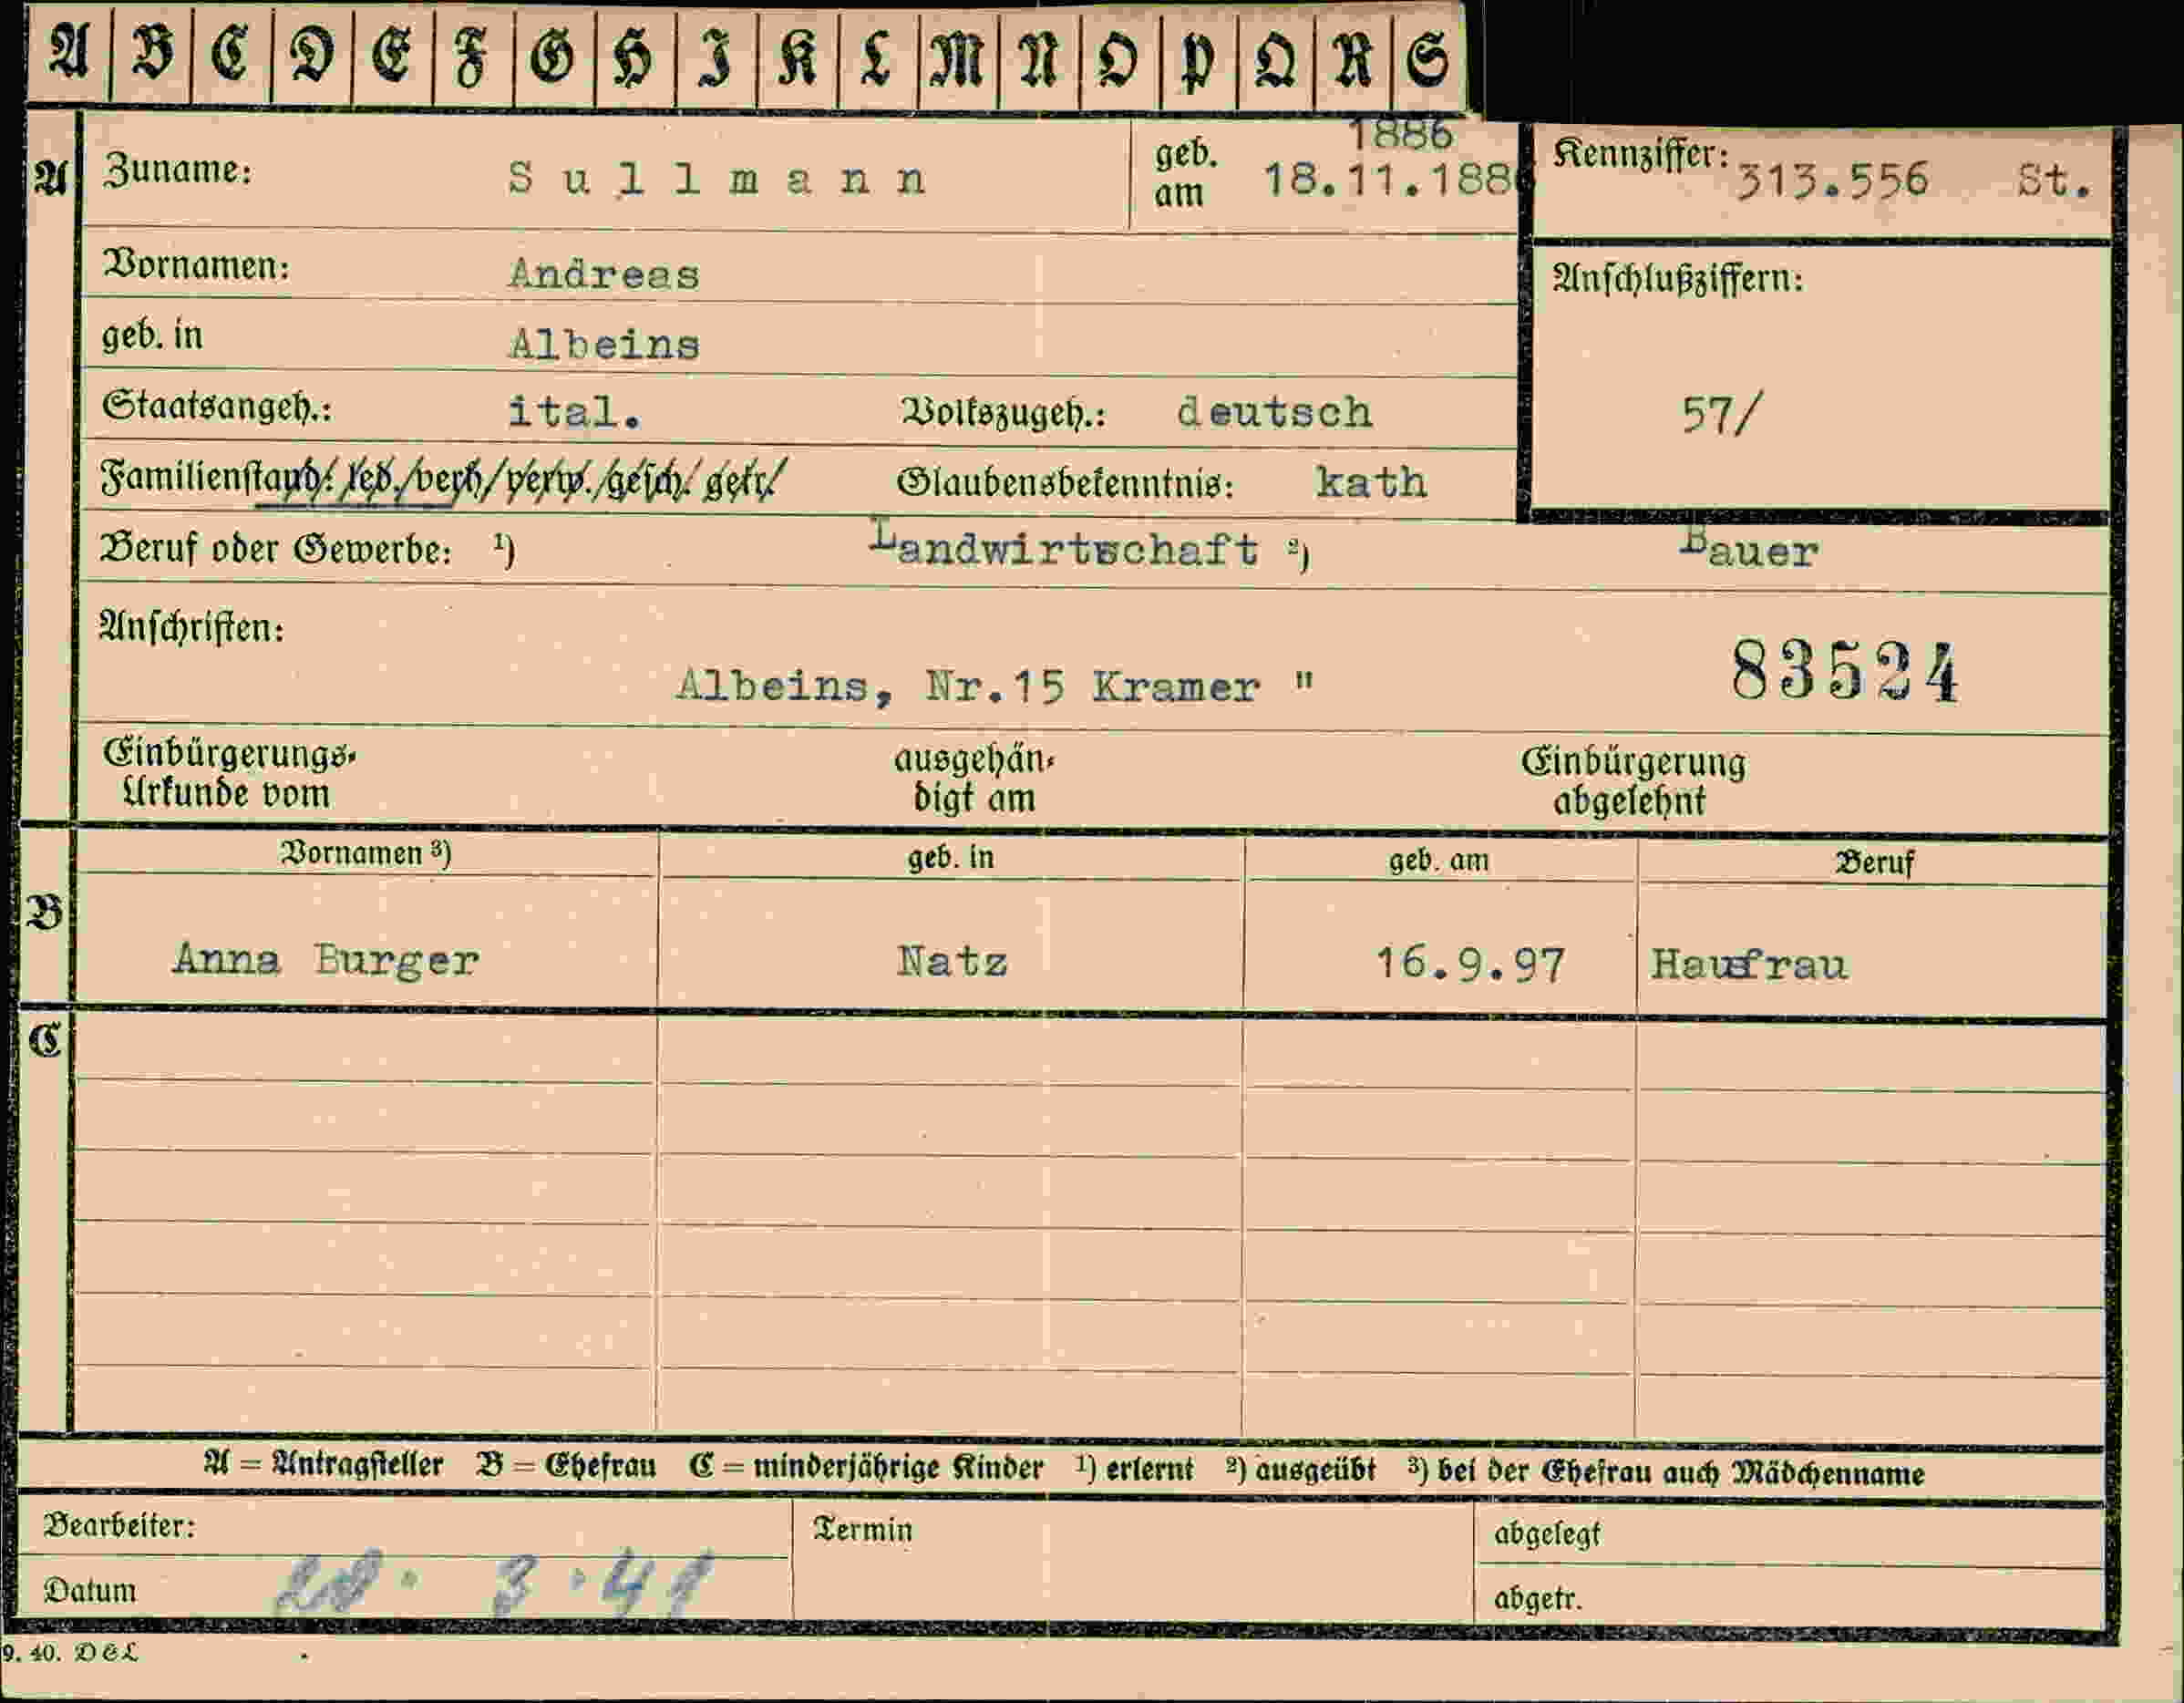 A B C D E F G H I K L M N O P Q R S
A Zuname: Sullmann geb. am 18.11.188 1886 Kennziffer: 313.556 St.
Vornamen: Andreas
geb. in Albeins
Anschlußziffern: 57/
Staatsangeh.: ital. Volkszugeh.: deutsch
Familienstand: led./verh/verw./gesch/ getr/ Glaubensbekenntnis: kath
Beruf oder Gewerbe: 1) Landwirtschaft 2) Bauer
Anschriften:
Albeins, Nr.15 Kramer " 83524
Einbürgerungs-Urkunde vom ausgehändigt am Einbürgerung abgelehnt
Vornamen 3) geb. in geb. am Beruf
B
Anna Burger Natz 16.9.97 Hausfrau
C
A = Antragsteller B = Ehefrau C = minderjährige Kinder 1) erlernt 2) ausgeübt 3) bei der Ehefrau auch Mädchenname
Bearbeiter: Termin abgelegt
Datum 3.41 abgetr.
9. 40. DEL